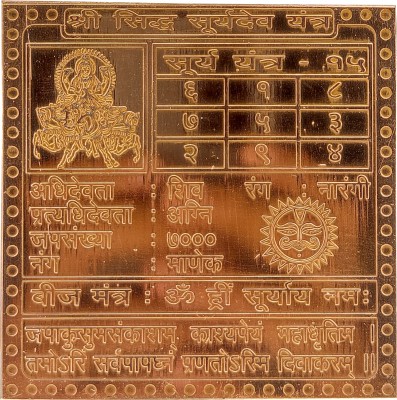 श्री सिद्ध सूर्यदेव यंत्र
सूर्य यंत्र - १५
६ १ ८
७ ५ ३
२ ९ ४
अधिदेवता : शिव रंग : नारंगी
प्रत्यधिदेवता : अग्नि
जपसंख्या : ७०००
नंग : माणेक
बीज मंत्र : ॐ ह्रीं सूर्याय नमः
जपाकुसुमसंकाशम् काश्यपेयं महाधुतिम् ।
तमोऽरिं सर्वपापघ्नं प्रणतोऽस्मि दिवाकरम् ॥